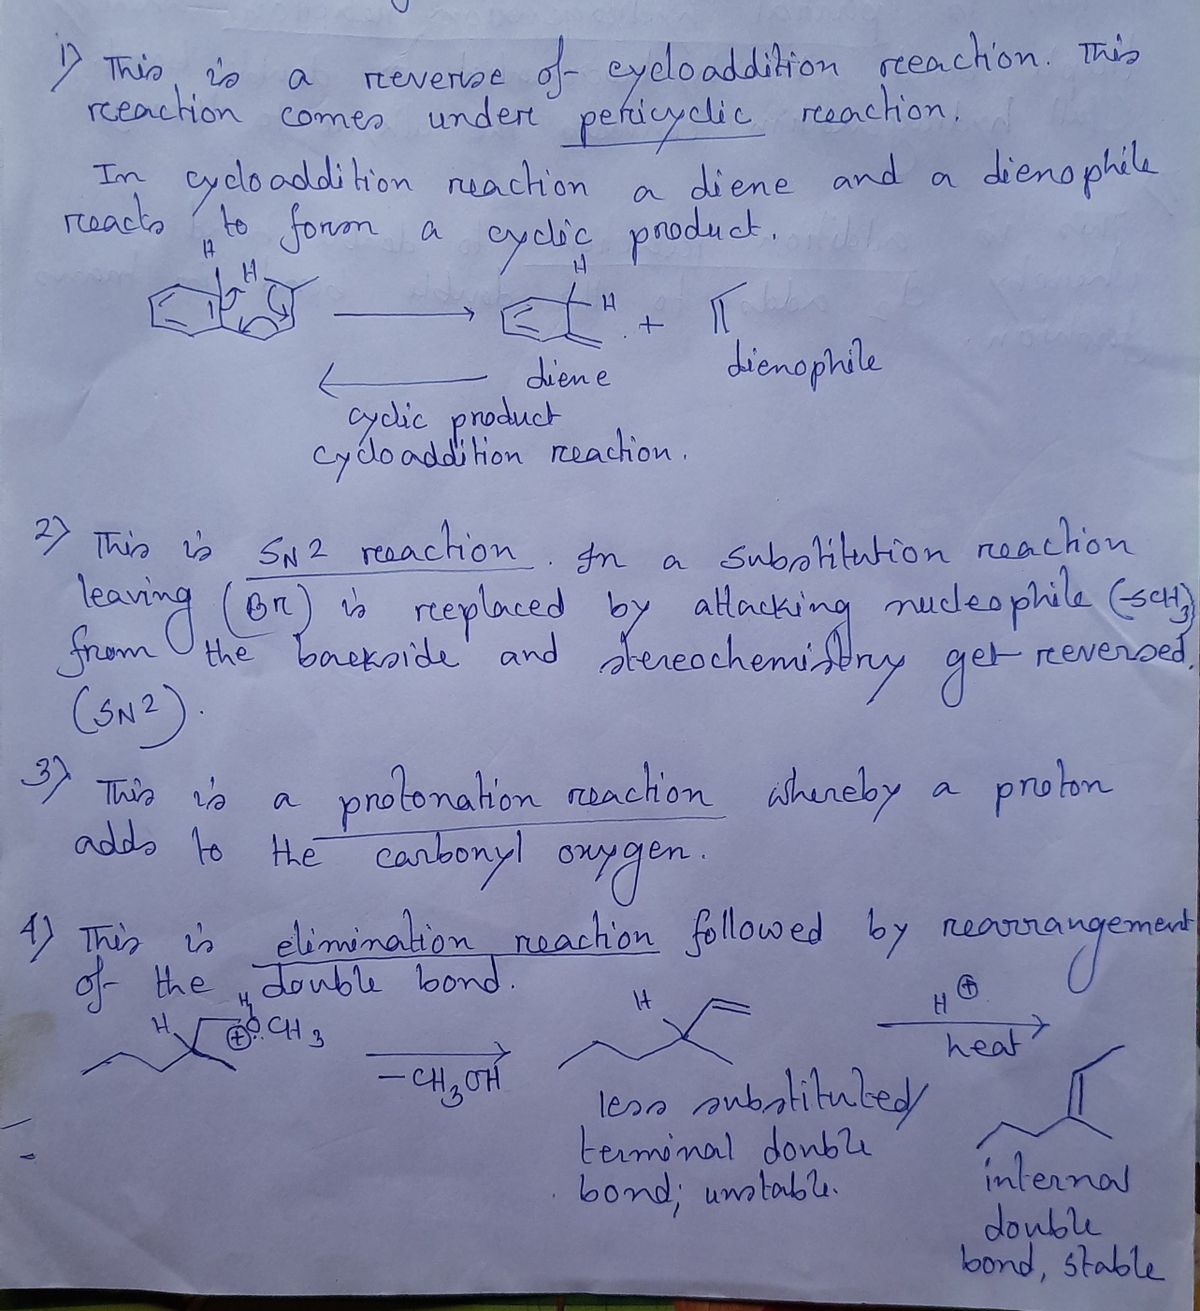 1) This is a reverse of cycloaddition reaction. This
reaction comes under pericyclic reaction.
In cycloaddition reaction a diene and a dienophile
reacts to form a cyclic product.
H H H
H +
diene dienophile
cyclic product
cycloaddition reaction.
2) This is SN2 reaction. In a substitution reaction
leaving (Br) is replaced by attacking nucleophile (-SCH3)
from the backside and stereochemistry get reversed.
(SN2).
3) This is a protonation reaction whereby a proton
adds to the carbonyl oxygen.
4) This is elimination reaction followed by rearrangement
of the double bond.
H H O CH3 ⊕ H H⊕
-CH3OH heat
less substituted/
terminal double
bond; unstable.
internal
double
bond, stable